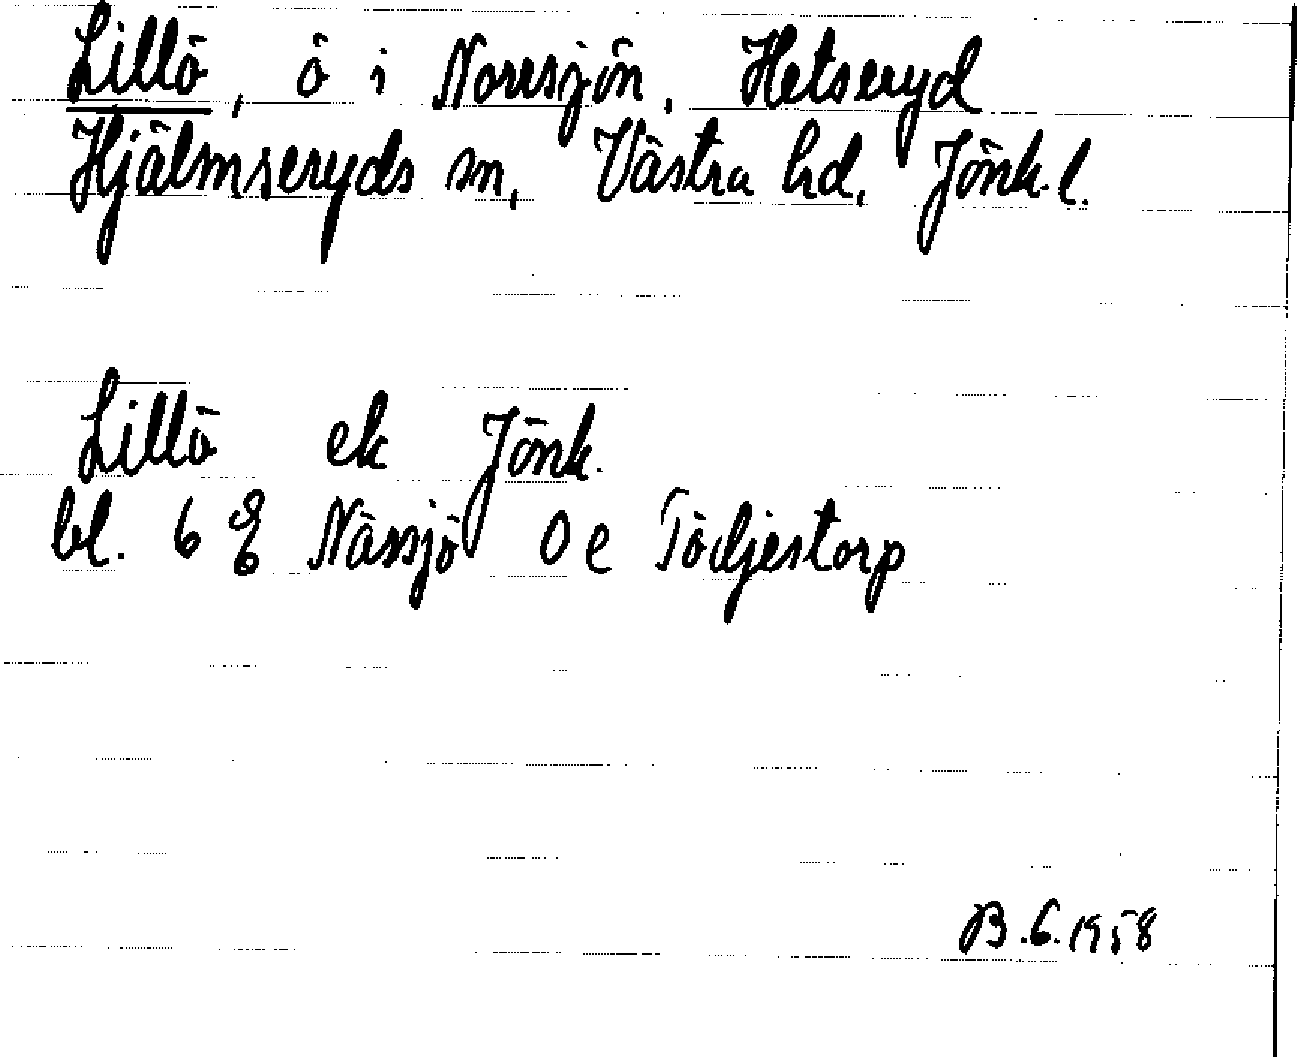 Lillö, ö i Norrsjön. Hetseryd
Hjälmseryds sn, Västra hd, Jönk. l.
Lillö ek Jönk.
bl. 6 E Nässjö 0 e Tödjestorp
B.G. 1958